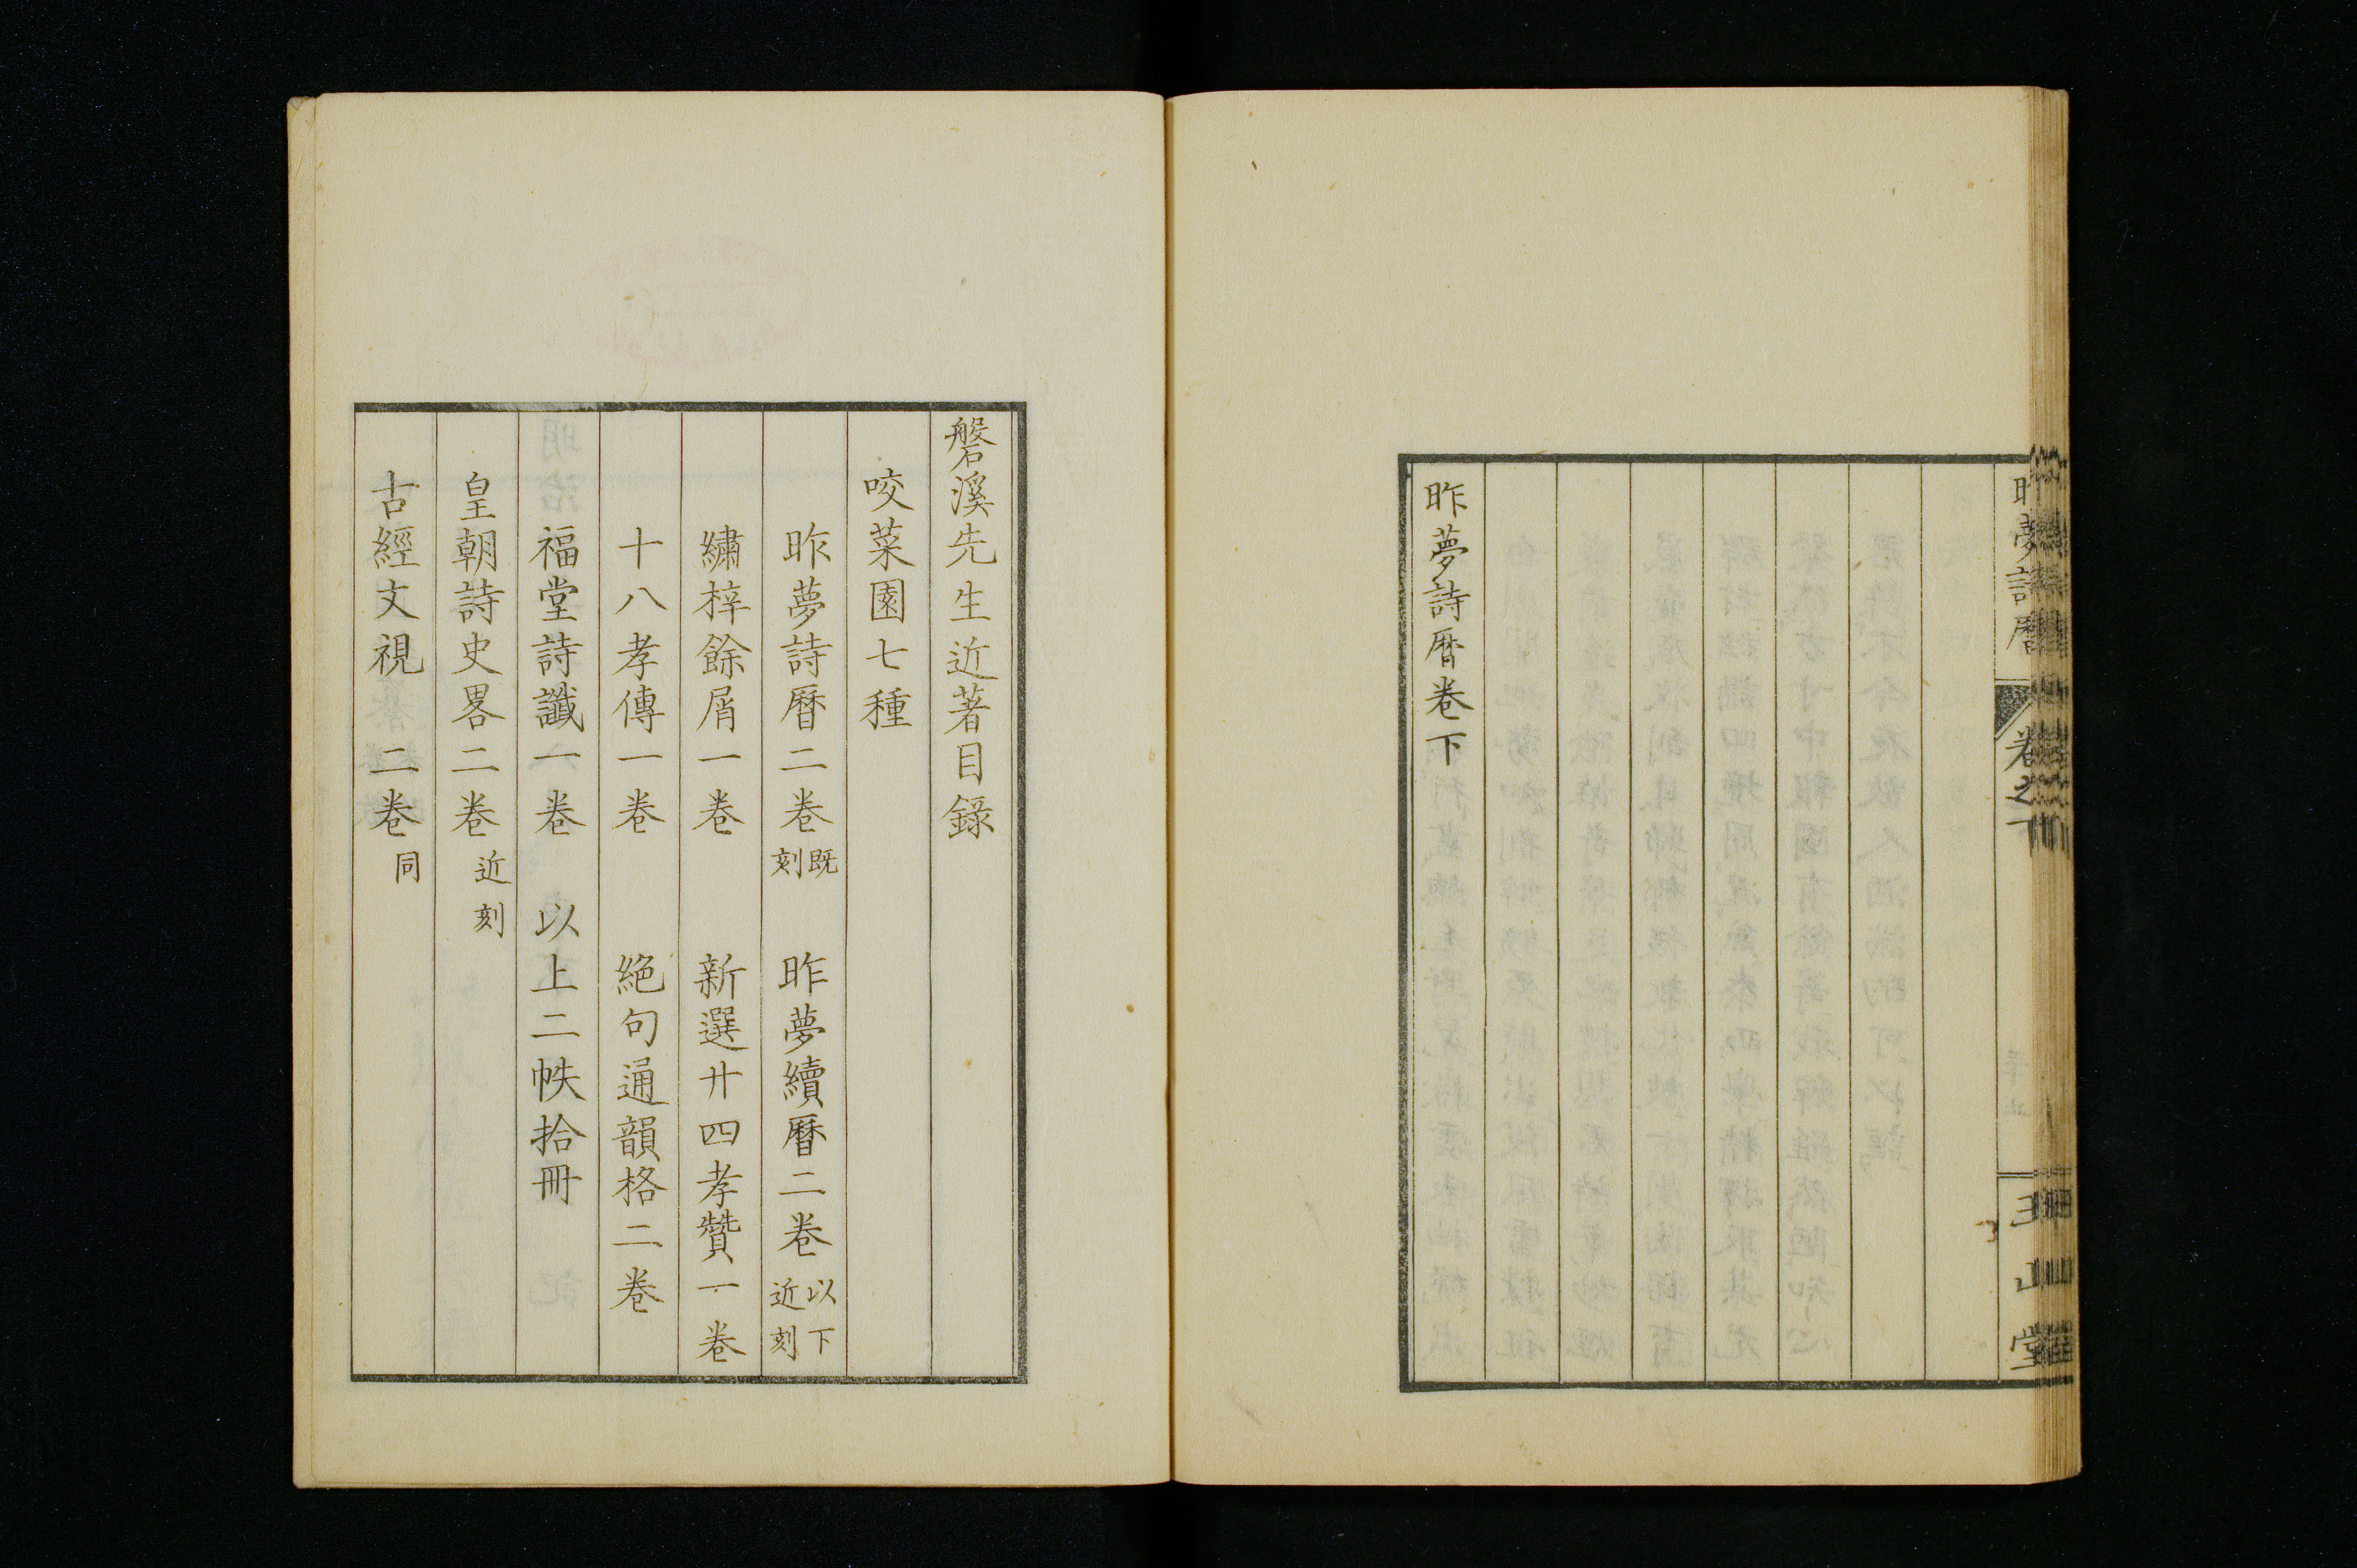 昨夢詩暦卷下
磐溪先生近著目錄
咬菜園七種
昨夢詩曆二卷 既刻 昨夢續曆二卷 以下近刻
繡梓餘屑一卷 新選廿四孝贊一卷
十八孝傳一卷 絕句通韻格二卷
福堂詩讖一卷 以上二帙拾冊
皇朝詩史畧二卷 近刻
古經文視二卷 同